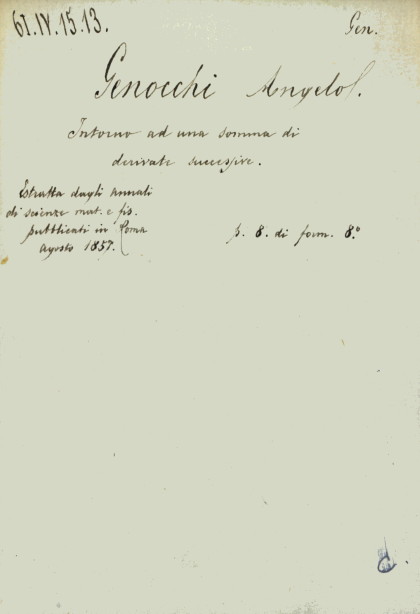 61.IV.15.13.
Gen.
Genocchi Angelo.
Intorno ad una somma di
derivate successive.
Estratta dagli annali
di scienze mat. e fis.
pubblicati in Roma
agosto 1857.
p. 8. di form. 8.º